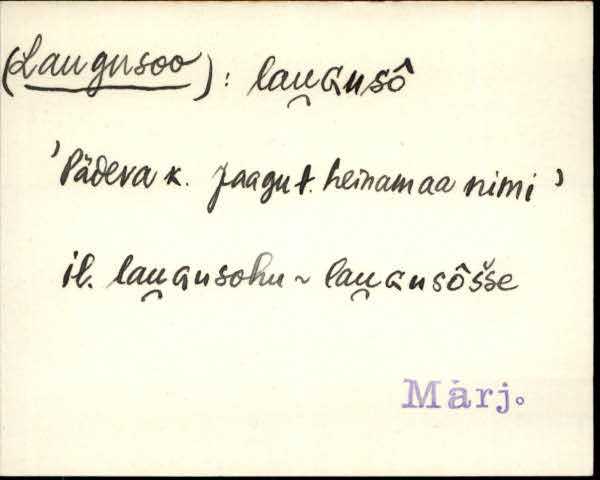 (Laugusoo): lau̯Gusô
'Pädeva k. Jaagu t. heinamaa nimi'
il. lau̯Gusohu ~ lau̯Gusôšse
Märj.